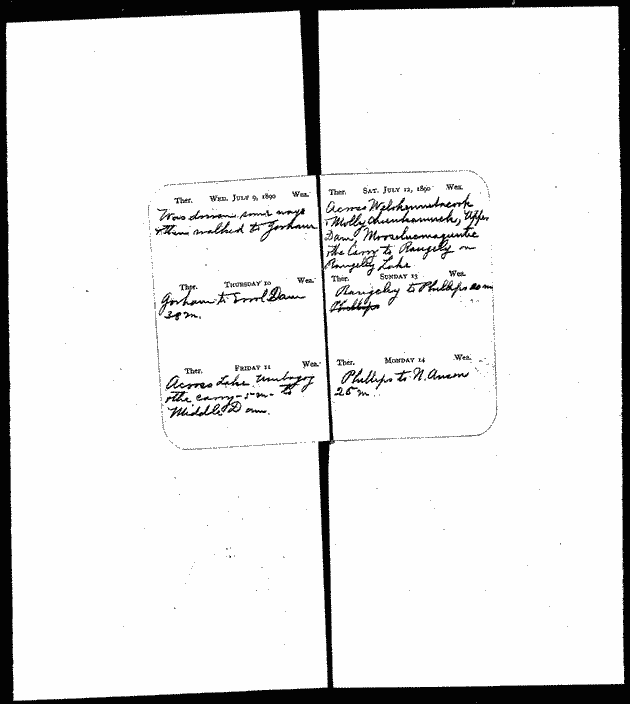 Ther. WED. JULY 9, 1890 Wea.
Was down some ways
& then walked to Gorham
Ther. THURSDAY 10 Wea.
Gorham to Errol Dam
38 m.
Ther. FRIDAY 11 Wea.
Across Lake Umbagog
& the carry - 5 - m - to
Middle Dam.
Ther. SAT. JULY 12, 1890 Wea.
Across Welokennebacook
& Molly Chunkamunk, Upper
Dam, Mooselucmaguntic
& the Carry to Rangely on
Rangeley Lake
Ther. SUNDAY 13 Wea.
Rangeley to Phillips 20 m
Phillips
Ther. MONDAY 14 Wea.
Phillips to N. Anson
25 m.